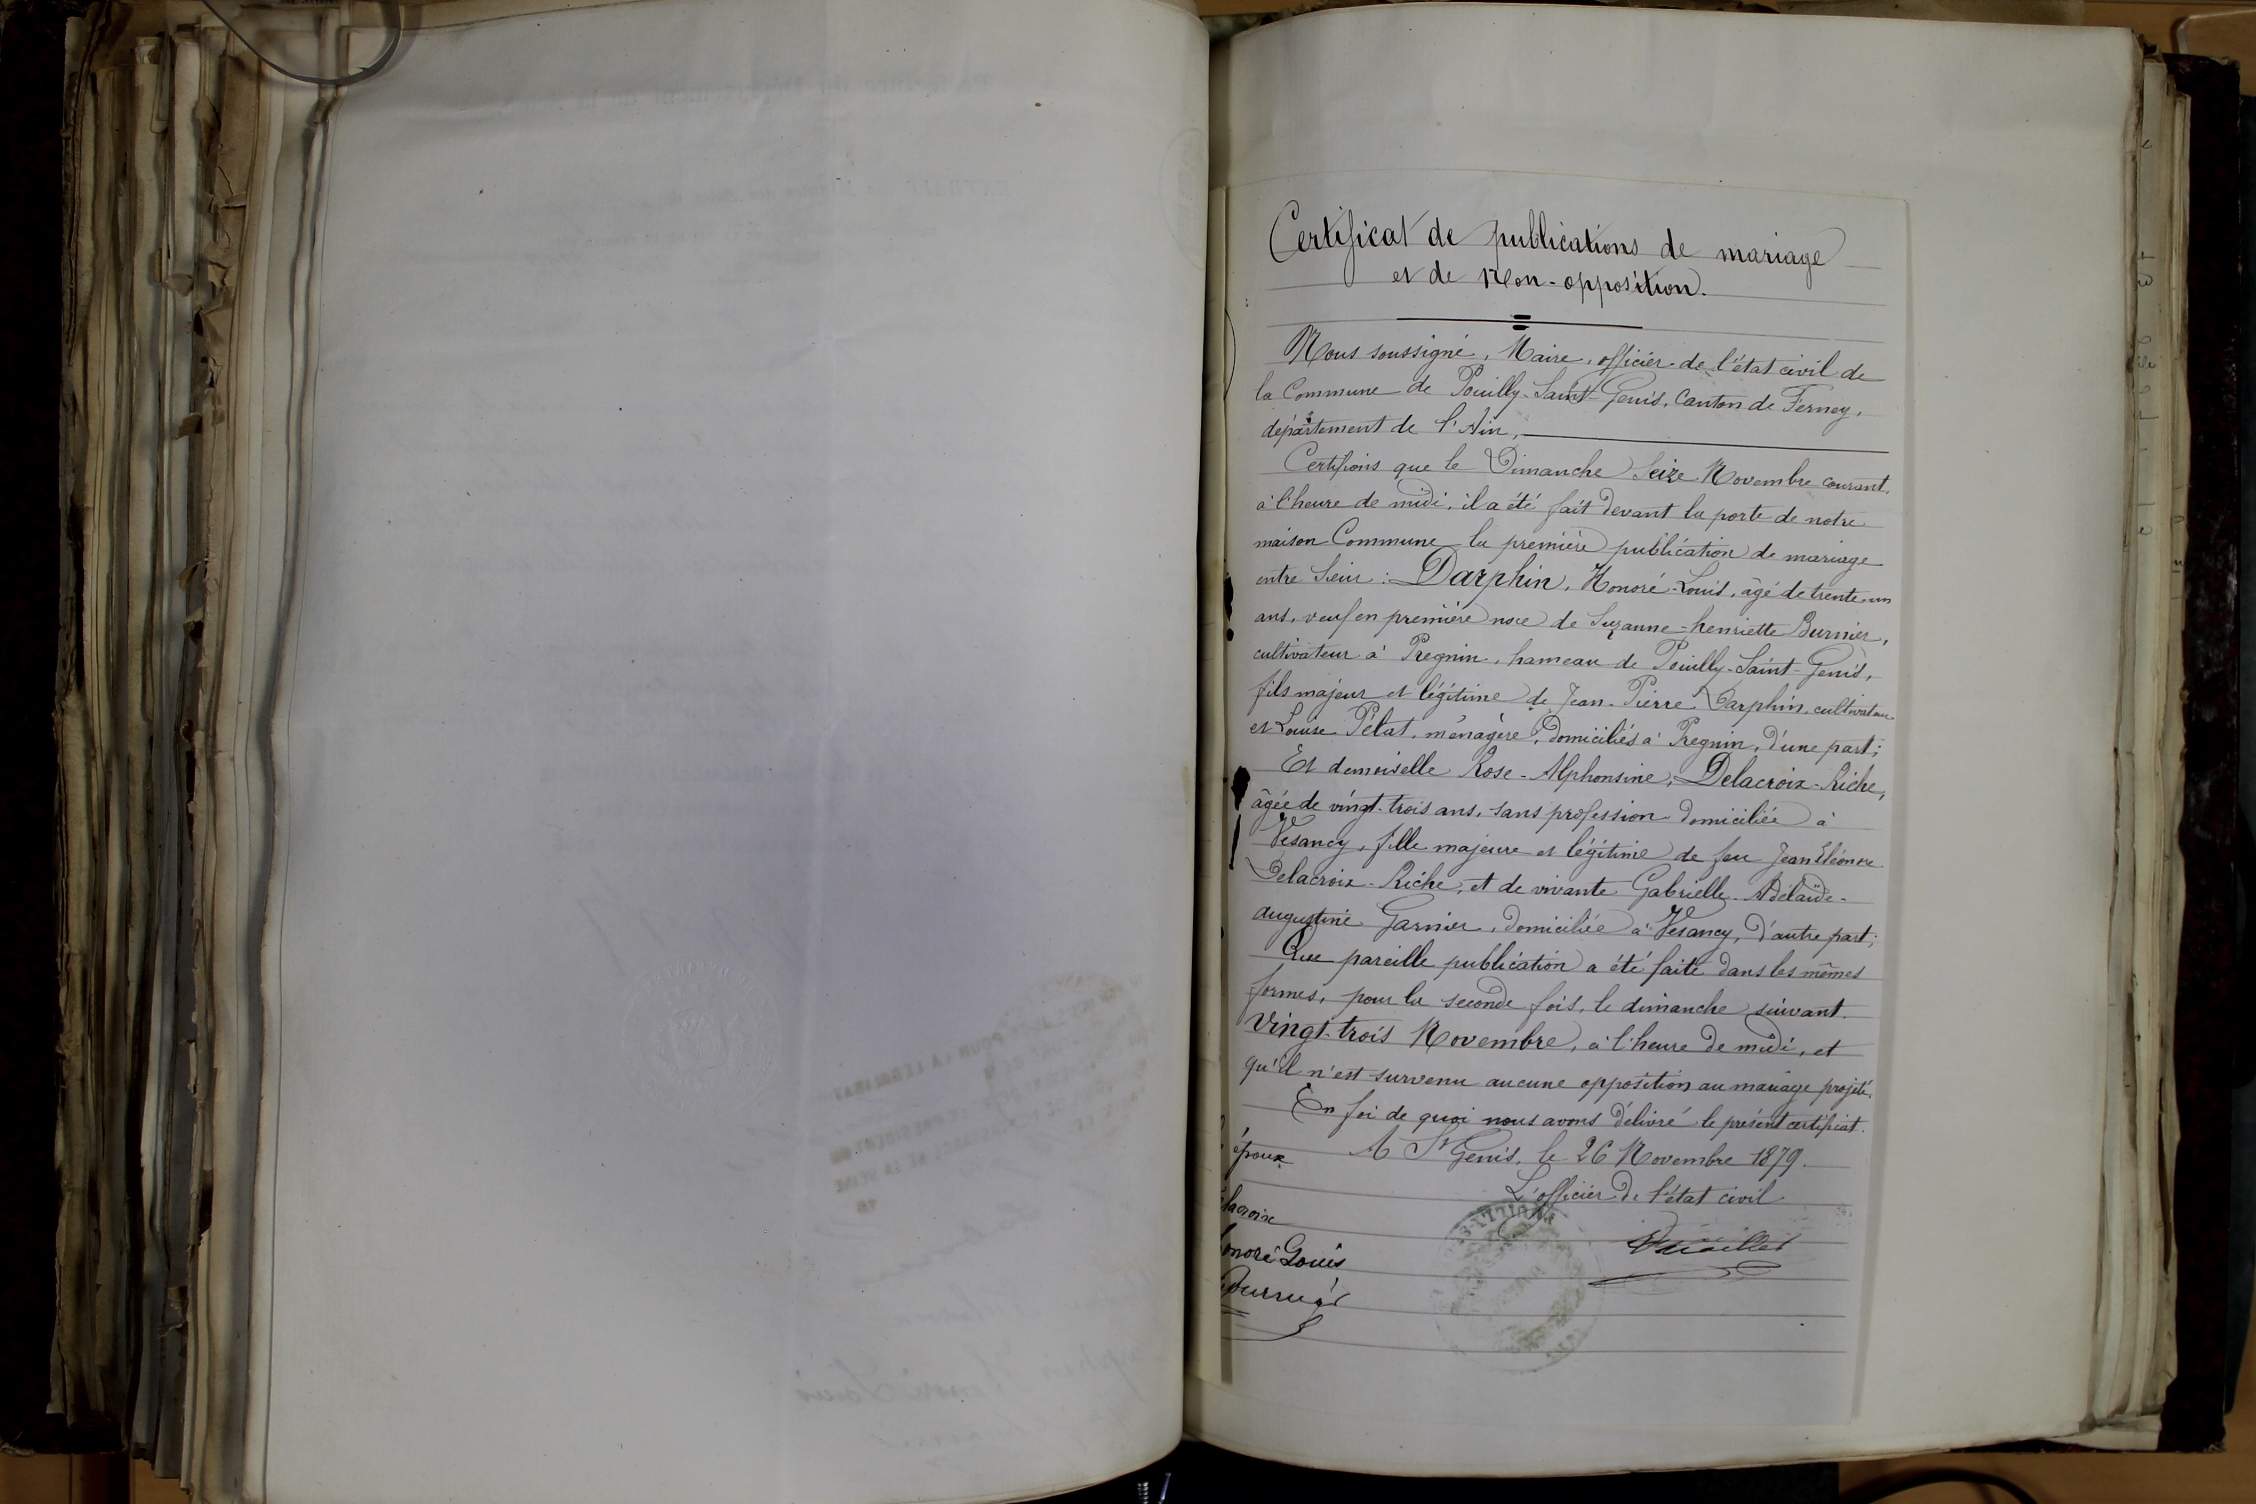 Certificat de publications de mariage
et de Non-opposition.
Nous soussigné, Maire, officier de l'état civil de
la Commune de Pouilly-Saint-Genis, Canton de Ferney,
département de l'Ain,
Certifions que le Dimanche Seize Novembre courant,
à l'heure de midi, il a été fait devant la porte de notre
maison Commune la première publication de mariage
entre Sieur : Darphin, Honoré-Louis, âgé de trente-un
ans, veuf en première noce de Suzanne-henriette Burnier,
cultivateur à Pregnin, hameau de Pouilly-Saint-Genis,
fils majeur et légitime de Jean-Pierre Darphin, cultivateur
et Louise Pélat, ménagère, domiciliés à Pregnin, d'une part;
Et demoiselle Rose-Alphonsine, Delacroix-Riche,
âgée de vingt-trois ans, sans profession domiciliée à
Vesancy, fille majeure et légitime de feu Jean Eléonore
Delacroix-Riche, et de vivante Gabrielle-Adélaïde-
augustine Garnier, domiciliée à Vesancy, d'autre part;
Que pareille publication a été faite dans les mêmes
formes, pour la seconde fois, le dimanche suivant
Vingt-trois Novembre, à l'heure de midi, et
qu'il n'est survenu aucune opposition au mariage projeté.
En foi de quoi nous avons délivré le présent certificat.
époux
A St Genis, le 26 Novembre 1879.
L'officier de l'état civil
lacroix
onoré Louis